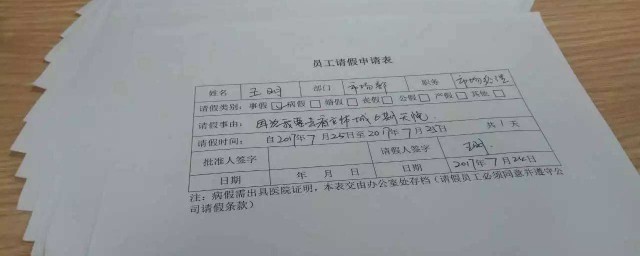 员工请假申请表
姓名 王明 部门 市场部 职务
请假类别：事假 病假 婚假 丧假 公假 产假 其他
请假事由：因为我要去看
请假时间： 自2017年7月25日至2017年7月25日 共1天
批准人签字 请假人签字 王明
日期 年 月 日 日期 2017年7月24日
注：病假需出具医院证明，本表交由办公室处存档（请假员工必须同意并遵守公
司请假条款）